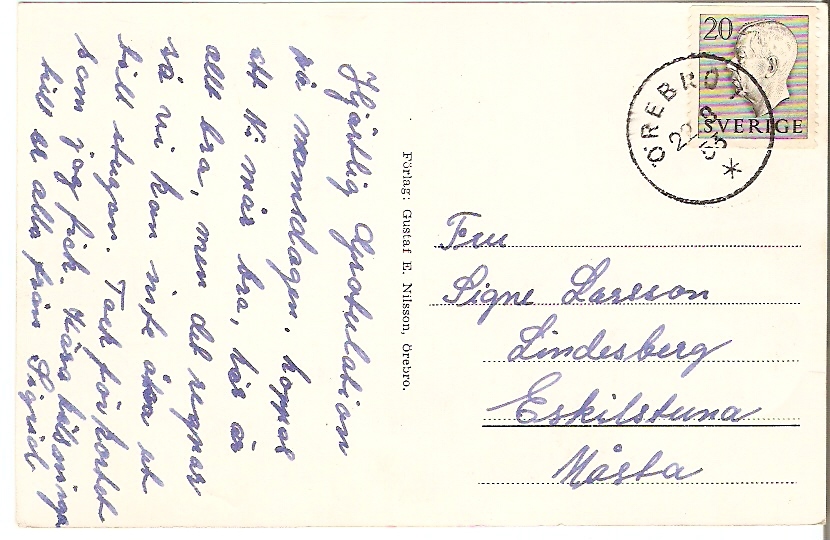 Hjärtlig Gratulation
på namnsdagen. hoppas
att Ni mår bra, här är
allt bra, men det regnar
så vi kan inte åka ut
till stugan. Tack för kortet
som jag fick. Kära hälsningar
till er alla från Sigrid
Förlag: Gustaf E. Nilsson, Örebro.
20
SVERIGE
ÖREBRO 1
22 8
53
Fru
Signe Larsson
Lindesberg
Eskilstuna
Måsta